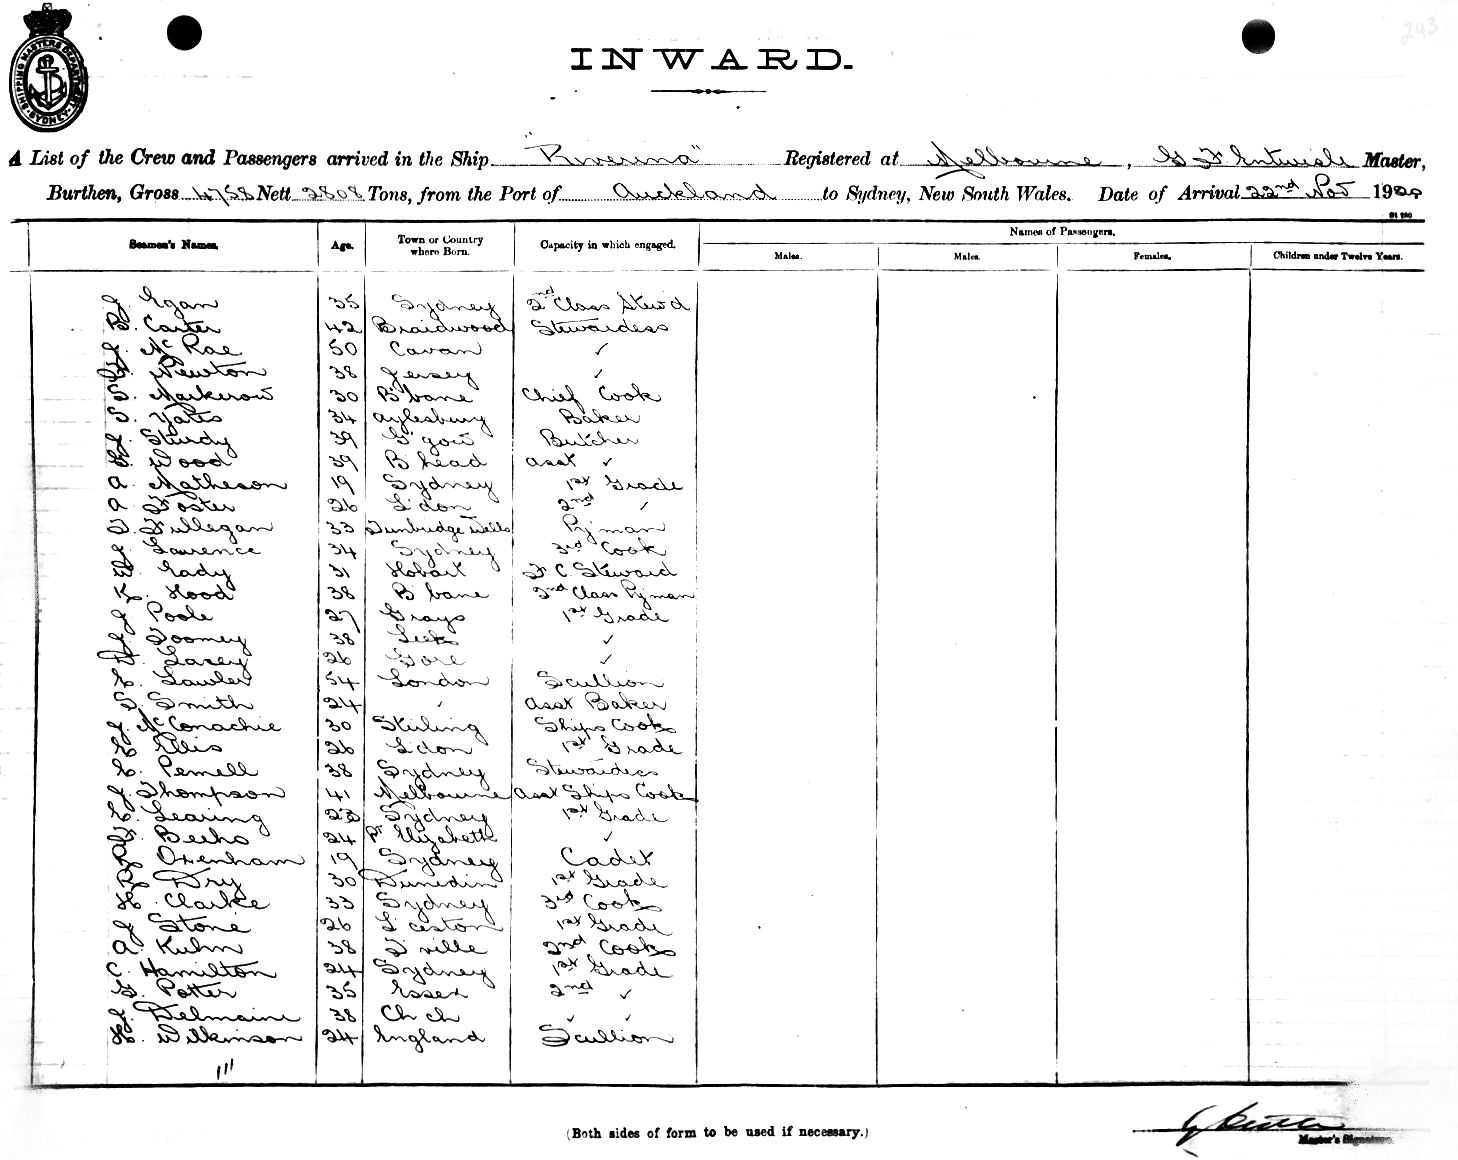 243
SHIPPING MASTERS DEPARTMENT
SYDNEY
INWARD.
A List of the Crew and Passengers arrived in the Ship "Riverina" Registered at Melbourne, G F Entwisle Master,
Burthen, Gross 4758 Nett 2808 Tons, from the Port of Auckland to Sydney, New South Wales. Date of Arrival 22nd Nov 192
Seamen's Names. Age. Town or Country where Born. Capacity in which engaged. Names of Passengers.
Males. Males. Females. Children under Twelve Years.
J. Egan 35 Sydney 2nd Class Stew'd
B. Carter 42 Braidwood Stewardess
J. McRae 50 Cavan ✓
Newton 38 Jersey ✓
S. Markerow 30 B'bane Chief Cook
S. Yates 34 Aylesbury Baker
J. Sturdy 39 G'gow Butcher
G. Wood 39 B'head Asst ✓
A. Matheson 19 Sydney 1st Grade
A. Foster 26 L'don 2nd ✓
T. Fullegan 33 Tunbridge Wells P'man
J. Laurence 34 Sydney 3rd Cook
Eady 31 Hobart F.C. Steward
Hood 38 B'bane 2nd Class P'man
J. Poole 27 Grays 1st Grade
J. Toomey 38 Leek ✓
Lasey 26 Gore ✓
Lawler 54 London Scullion
S. Smith 24 ✓ Asst Baker
J. McConachie 30 Stirling Ships Cook
Ellis 26 L'don 1st Grade
Pemell 38 Sydney Stewardess
J. Thompson 41 Melbourne Asst Ships Cook
Learing 23 Sydney 1st Grade
Beeho 24 Pt Elizabeth ✓
Oxenham 19 Sydney Cadet
Dry 30 Dunedin 1st Grade
H. Clarke 33 Sydney 3rd Cook
J. Stone 26 L'ceston 1st Grade
A. Kuhn 38 T'ville 2nd Cook
C. Hamilton 24 Sydney 1st Grade
G. Potter 35 Essex 2nd ✓
J. Delmaine 38 Ch ch ✓ ✓
H. Wilkinson 24 England Scullion
111
(Both sides of form to be used if necessary.)
Master's Signature.